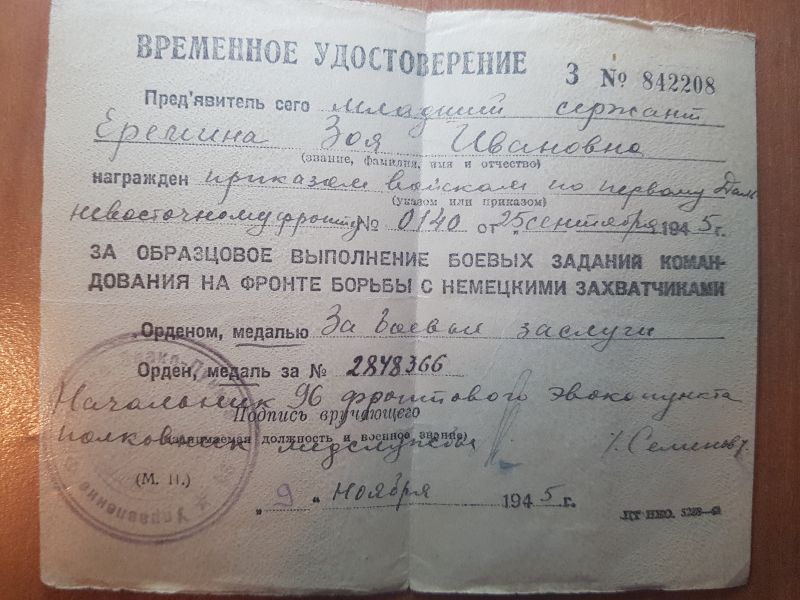 ВРЕМЕННОЕ УДОСТОВЕРЕНИЕ З № 842208
Пред'явитель сего младший сержант
Еремина Зоя Ивановна
(звание, фамилия, имя и отчество)
награжден приказом войскам по первому Даль
(указом или приказом)
невосточному фронту № 0140 от „25 сентября 1945 г.
ЗА ОБРАЗЦОВОЕ ВЫПОЛНЕНИЕ БОЕВЫХ ЗАДАНИЙ КОМАН-
ДОВАНИЯ НА ФРОНТЕ БОРЬБЫ С НЕМЕЦКИМИ ЗАХВАТЧИКАМИ
Орденом, медалью За боевые заслуги
Орден, медаль за № 2848366
Начальник 96 фронтового эвакопункта
Подпись вручающего
полковник медслужбы /Семенов/.
(занимаемая должность и военное звание)
(М. П.)
„9" ноября 1945 г.
ЦТ НКО.
Управление